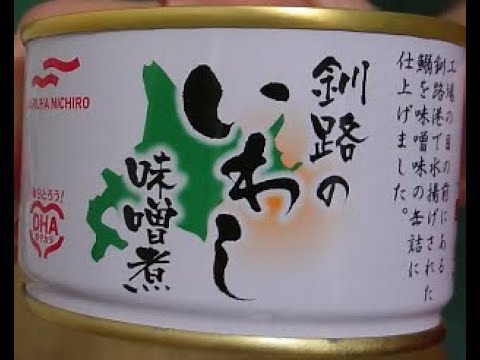 MARUHA NICHIRO
釧路の
いわし
味噌煮
工場の目の前にある
釧路港で水揚げされた
鰯を味噌味の缶詰に
仕上げました。
DHA